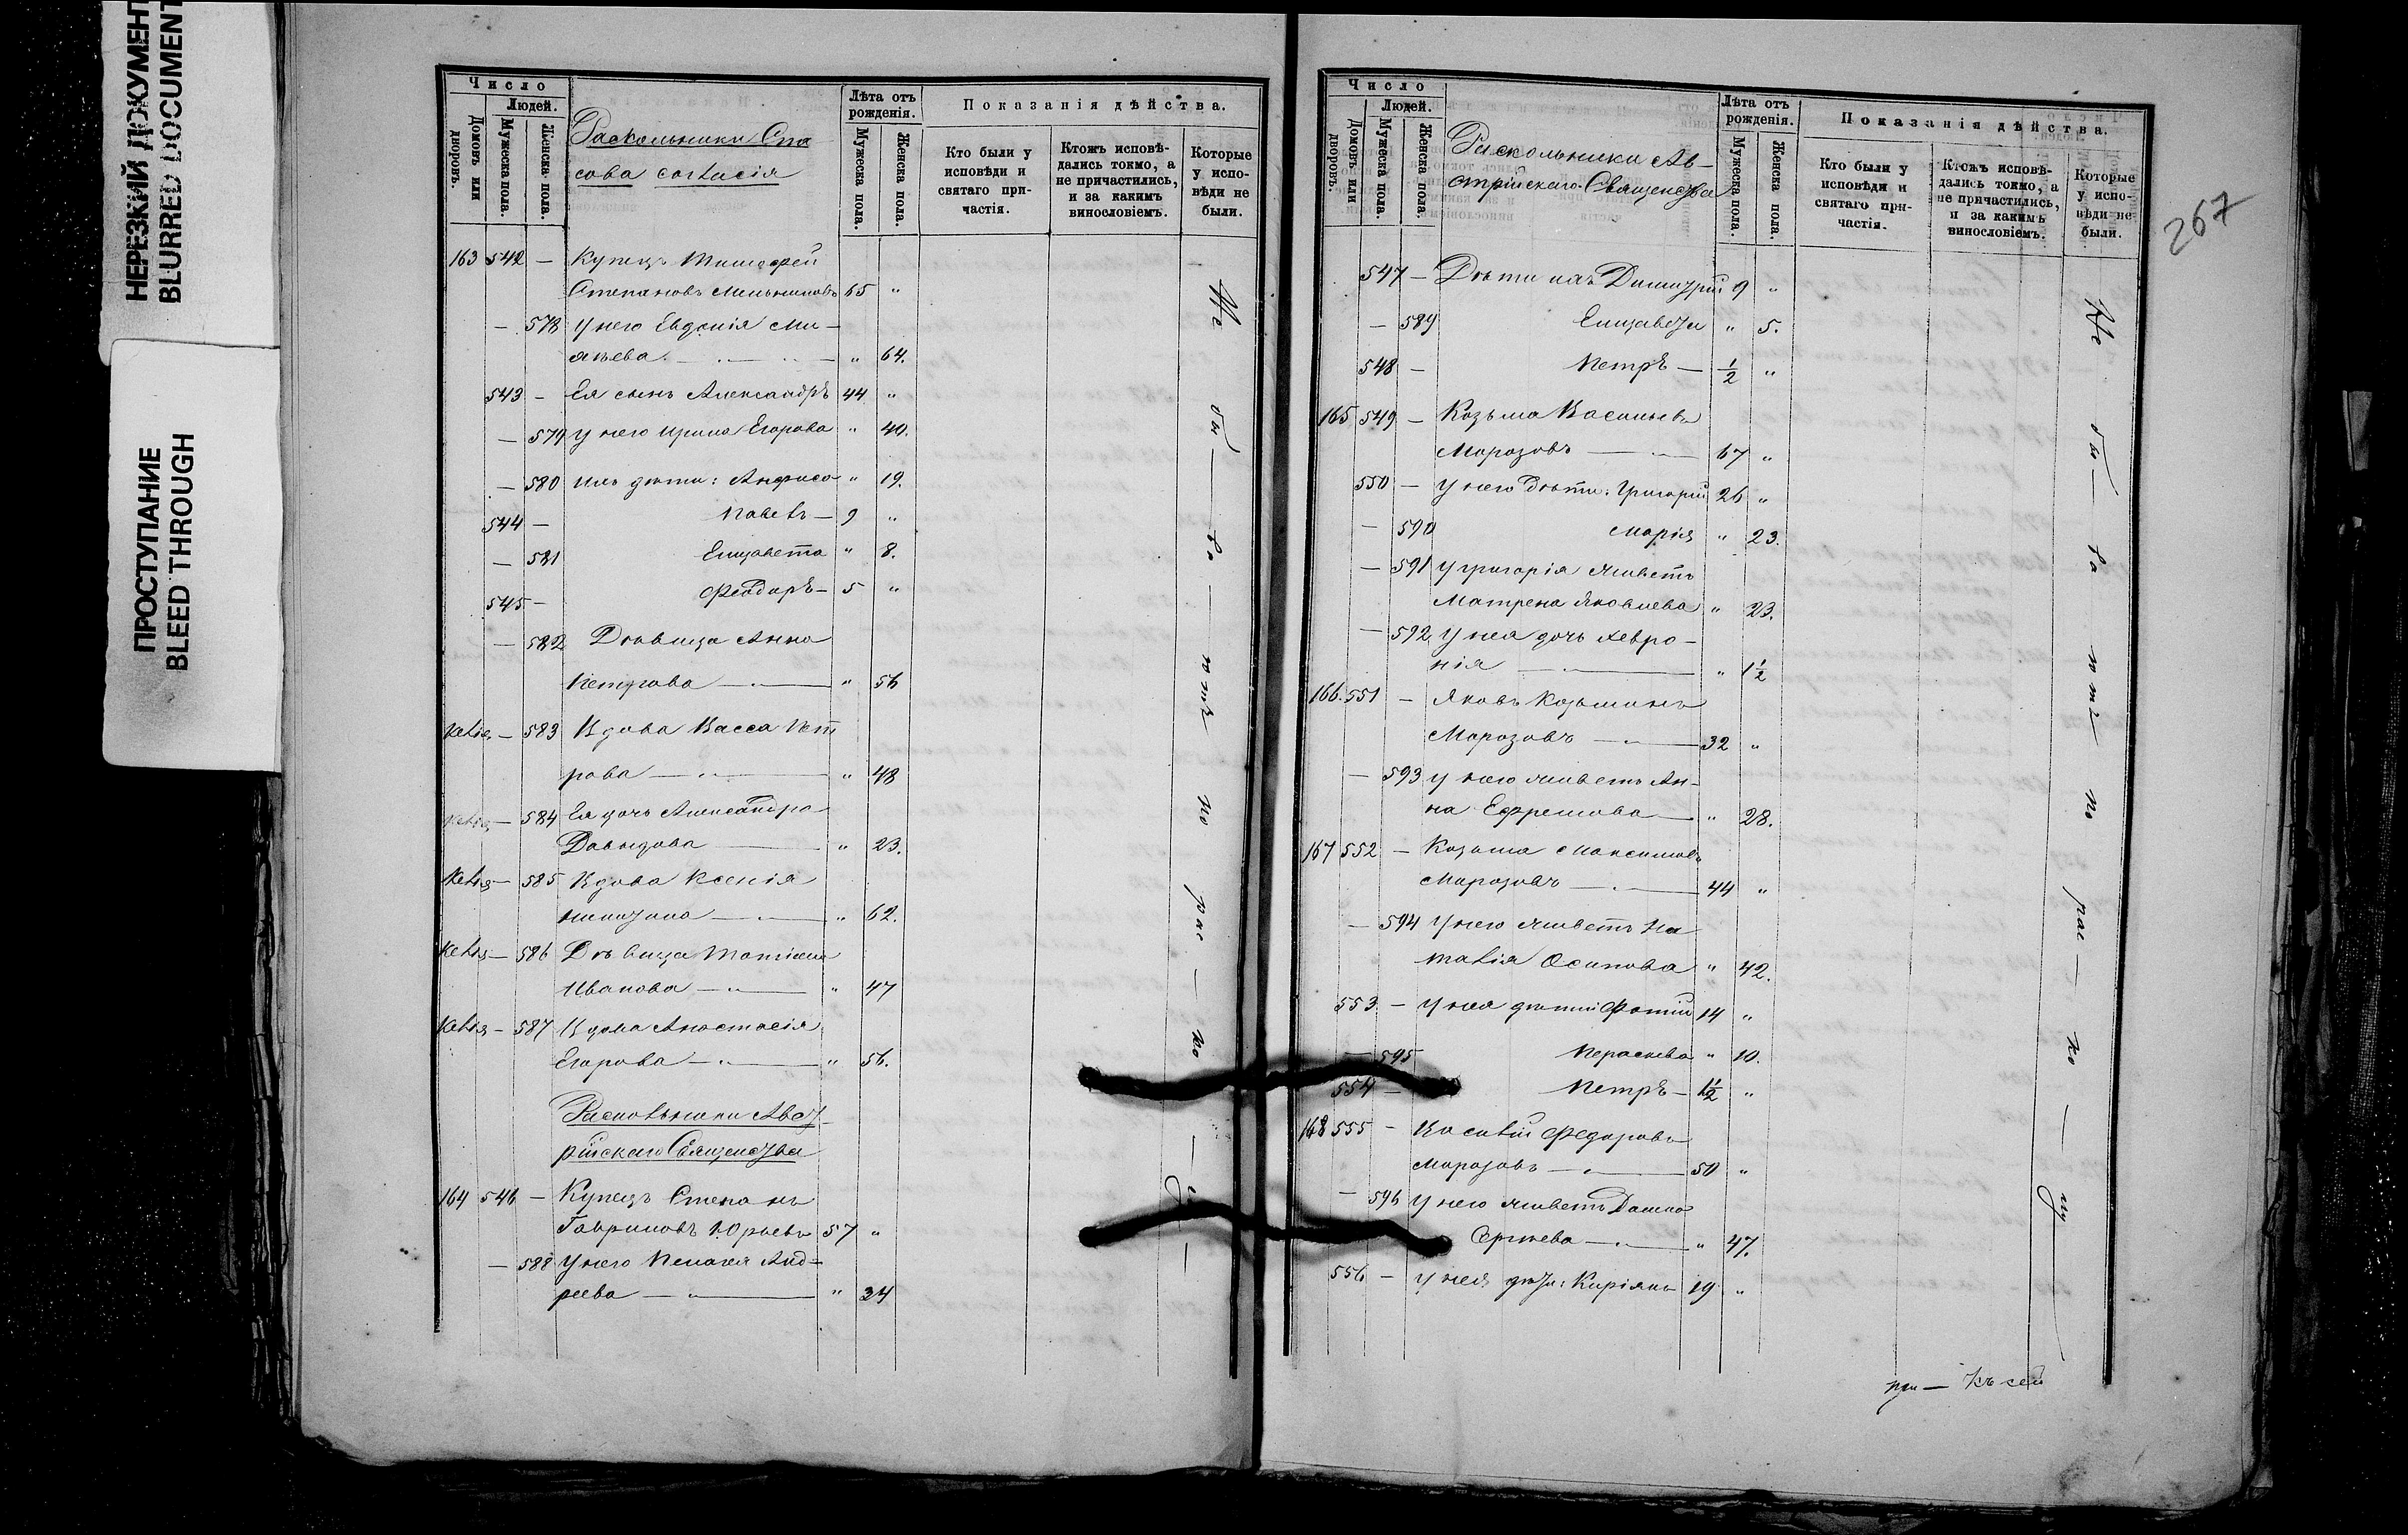 НЕРЕЗКИЙ ДОКУМЕНТ
BLURRED DOCUMENT
ПРОСТУПАНИЕ
BLEED THROUGH
Число
Людей.
Домовъ или дворовъ.
Мужеска пола.
Женска пола.
Раскольники Спа
сова согласія
Лѣта отъ рожденія.
Мужеска пола.
Женска пола.
Показанія дѣйства.
Кто были у исповѣди и святаго причастія.
Ктожъ исповѣдались токмо, а не причастились, и за какимъ винословіемъ.
Которые у исповѣди не были.
163 542 — Купецъ Тимофей
Степановъ Мельниковъ 65 "
— 578 У него Евдокія Ми—
" 64.
543 — Ея сынъ Александръ 44 "
— 579 У него Ирина Егорова " 40.
— 580 Ихъ дѣти: Анфиса " 19.
544 — Павелъ — 9 "
— 581 Елизавета " 8.
545 — Феодоръ — 5 "
— 582 Дѣвица Анна
Петрова — " 56
Келія — 583 Вдова Васса Пет
рова — " 48
Келія — 584 Ея дочь Александра
Давыдова — " 23.
Келія — 585 Вдова Ксенія
Никитина — " 62.
Келія — 586 Дѣвица Татіана
Иванова — " 47
Келія — 587 Вдова Анастасія
Егорова — " 56.
Раскольники Авст
рійскаго Священства
164 546 — Купецъ Степанъ
Гавриловъ Юрьевъ 57 "
— 588 У него Пелагея Анд—
реева — " 34
Не бы — ло — по рас — ко — лу —
Число
Людей.
Домовъ или дворовъ.
Мужеска пола.
Женска пола.
Раскольники Ав—
стрійскаго Священства
Лѣта отъ рожденія.
Мужеска пола.
Женска пола.
Показанія дѣйства.
Кто были у исповѣди и святаго причастія.
Ктожъ исповѣдались токмо, а не причастились, и за какимъ винословіемъ.
Которые у исповѣди не были.
267
547 — Дѣти ихъ Димитрій 9 "
— 589 Елизавета " 5.
548 — Петръ — 1/2 "
165 549 — Козьма Васильевъ
Морозовъ — 67 "
550 — У него дѣти: Григорій 26 "
— 590 Марія " 23.
— 591 У Григорія живетъ
Матрена Яковлева " 23.
— 592 У нея дочь Февро—
нія — " 1 1/2
166. 551 — Яковъ Козьминъ
Морозовъ — 32 "
— 593 У него живетъ Ан—
на Ефремова — " 28.
167 552 — Козьма Максимовъ
Морозовъ — 44 "
— 594 У него живетъ На
талія Осипова " 42.
553 — У нея дѣти: Фотій 14 "
— 595 Параскева " 10.
554 — Петръ — 1 1/2 "
168 555 — Василій Федоровъ
Морозовъ — 50 "
— 596 У него живетъ Домна
Сергѣева — " 47.
556 — У нея дѣти: Киріянъ 19 "
Не бы — ло — по рас — ко — лу
къ сей